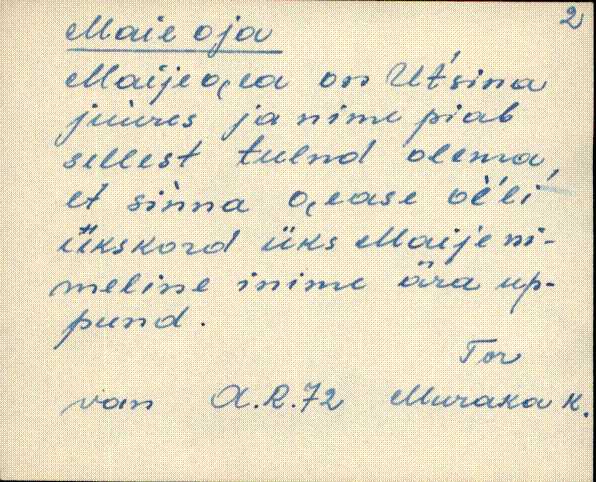 2
Maie oja
Maijeo̭ea on Ut́sina
juures ja nime piab
sellest tulnd olema,
et sinna o̭ease oĺĺi
ükskord üks Maije ni-
meline inime ära up-
pund.
Tor
van A.R.72 Muraka k.